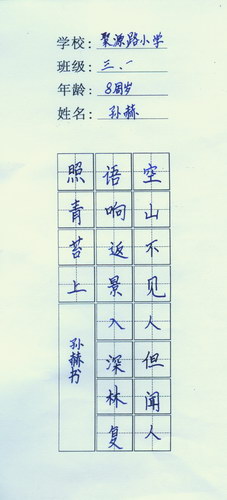 学校：聚源路小学
班级：三.一
年龄：8周岁
姓名：孙赫
空山不见人但闻人
语响返景入深林复
照青苔上
孙赫书